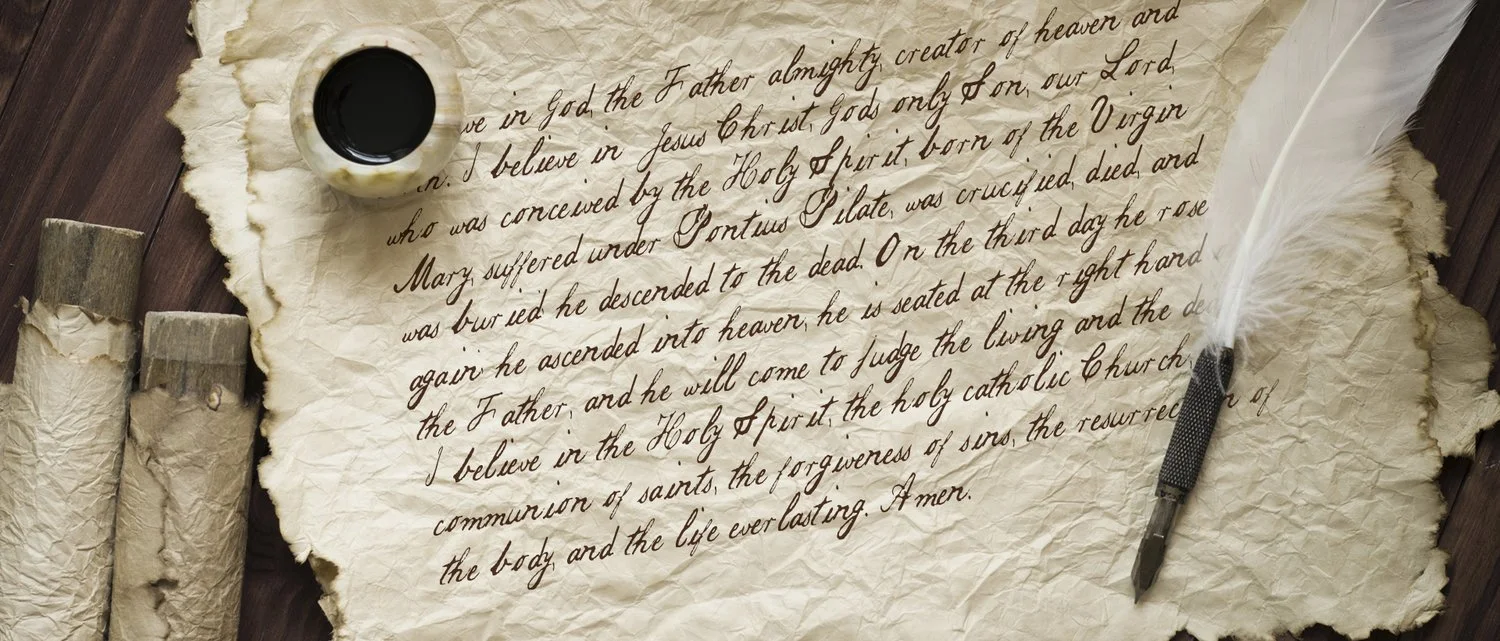 ve in God, the Father almighty, creator of heaven and
h. I believe in Jesus Christ, Gods only Son, our Lord,
who was conceived by the Holy Spirit, born of the Virgin
Mary, suffered under Pontius Pilate, was crucified, died, and
was buried he descended to the dead. On the third day he rose
again he ascended into heaven, he is seated at the right hand
the Father, and he will come to judge the living and the de
I believe in the Holy Spirit, the holy catholic Church,
communion of saints, the forgiveness of sins, the resurrec n of
the body, and the life everlasting. Amen.